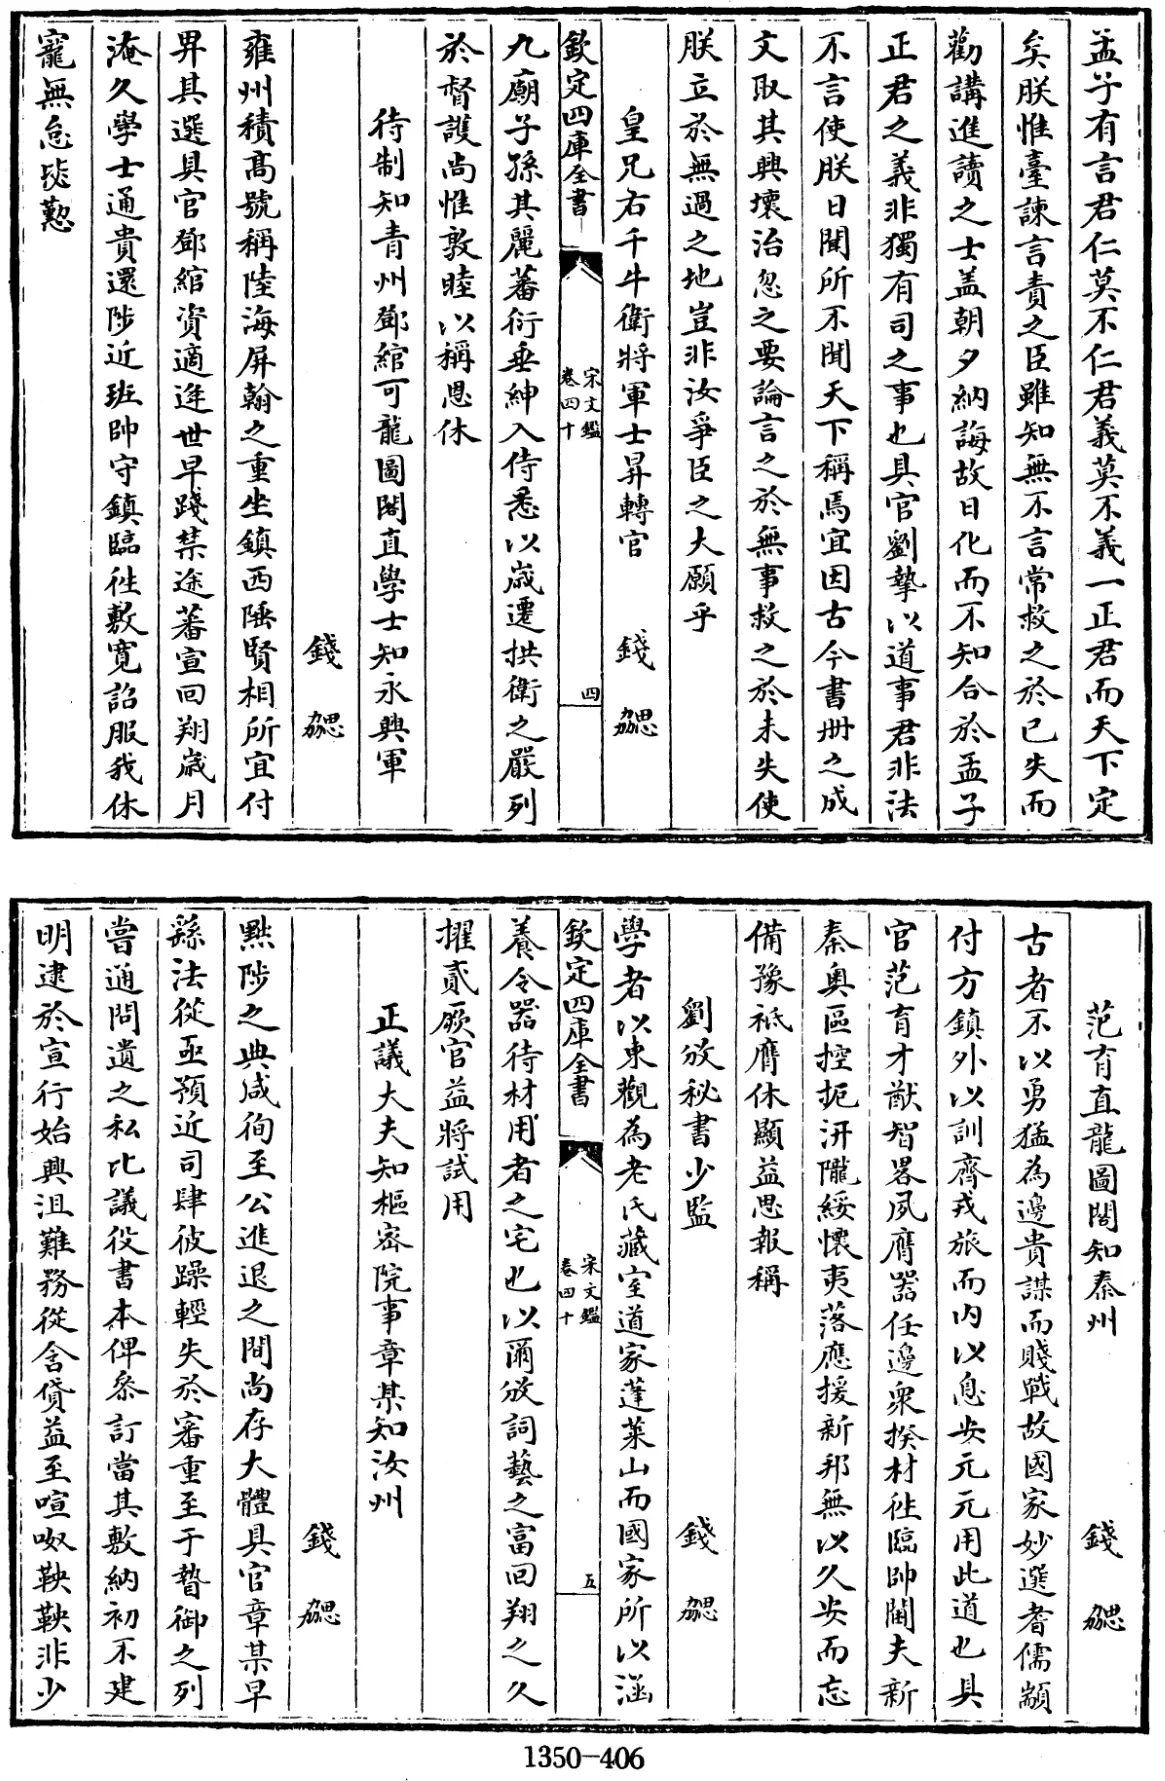 孟子有言君仁莫不仁君義莫不義一正君而天下定
矣朕惟臺諫言責之臣雖知無不言常救之於已失而
勸講進讀之士盖朝夕納誨故日化而不知合於孟子
正君之義非獨有司之事也具官劉摯以道事君非法
不言使朕日聞所不聞天下稱焉宜因古今書冊之成
文取其興壞治忽之要論言之於無事救之於未失使
朕立於無過之地豈非汝爭臣之大願乎
皇兄右千牛衛將軍士昇轉官 錢勰
欽定四庫全書 宋文鑑 卷四十 四
九廟子孫其麗蕃衍垂紳入侍悉以歲遷拱衛之嚴列
於督護尚惟敦睦以稱恩休
待制知青州鄧綰可龍圖閣直學士知永興軍
錢勰
雍州積髙號稱陸海屏翰之重坐鎮西陲賢相所宜付
畀其選具官鄧綰資適逢世早踐禁途蕃宣回翔歲月
淹久學士通貴還陟近班帥守鎮臨徃敷寛詔服我休
寵無怠毖懃
范育直龍圖閣知秦州 錢勰
古者不以勇猛為邊貴謀而賤戰故國家妙選耆儒顓
付方鎮外以訓齊戎旅而内以息安元元用此道也具
官范育才猷智畧夙膺器任邊衆揆材徃臨帥閫夫新
秦奥區控扼汧隴綏懷夷落應援新邦無以久安而忘
備豫祗膺休顯益思報稱
劉攽秘書少監 錢勰
學者以東觀為老氏藏室道家蓬萊山而國家所以涵
欽定四庫全書 宋文鑑 卷四十 五
養令器待材用者之宅也以爾攽詞藝之富回翔之久
擢貳厥官益將試用
正議大夫知樞密院事章某知汝州
錢勰
黜陟之典咸徇至公進退之間尚存大體具官章某早
繇法從亟預近司肆彼躁輕失於審重至于暬御之列
嘗通問遺之私比議役書本俾叅訂當其敷納初不建
明逮於宣行始興沮難務從含貸益至喧呶鞅鞅非少
1350-406